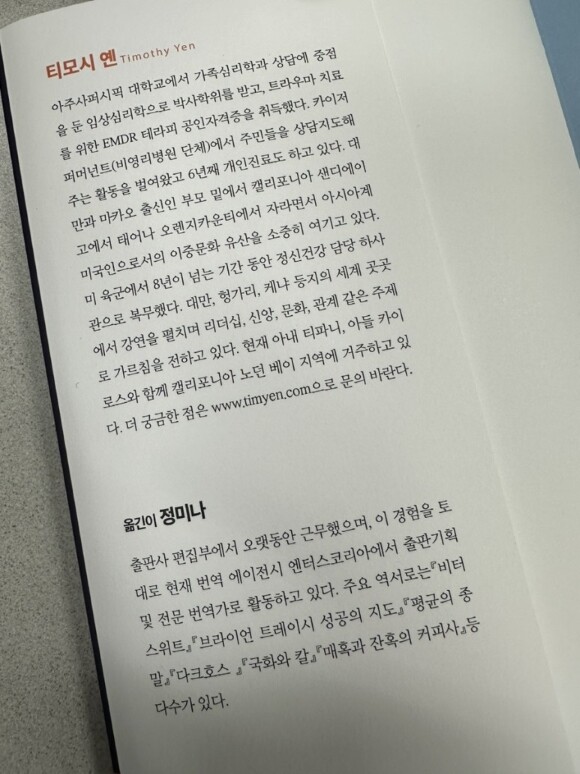 티모시 옌 Timothy Yen
아주사퍼시픽 대학교에서 가족심리학과 상담에 중점
을 둔 임상심리학으로 박사학위를 받고, 트라우마 치료
를 위한 EMDR 테라피 공인자격증을 취득했다. 카이저
퍼머넌트(비영리병원 단체)에서 주민들을 상담지도해
주는 활동을 벌여왔고 6년째 개인진료도 하고 있다. 대
만과 마카오 출신인 부모 밑에서 캘리포니아 샌디에이
고에서 태어나 오렌지카운티에서 자라면서 아시아계
미국인으로서의 이중문화 유산을 소중히 여기고 있다.
미 육군에서 8년이 넘는 기간 동안 정신건강 담당 하사
관으로 복무했다. 대만, 헝가리, 케냐 등지의 세계 곳곳
에서 강연을 펼치며 리더십, 신앙, 문화, 관계 같은 주제
로 가르침을 전하고 있다. 현재 아내 티파니, 아들 카이
로스와 함께 캘리포니아 노던 베이 지역에 거주하고 있
다. 더 궁금한 점은 www.timyen.com으로 문의 바란다.
옮긴이 정미나
출판사 편집부에서 오랫동안 근무했으며, 이 경험을 토
대로 현재 번역 에이전시 엔터스코리아에서 출판기획
및 전문 번역가로 활동하고 있다. 주요 역서로는 『비터
스위트』『브라이언 트레이시 성공의 지도』『평균의 종
말』『다크호스 』『국화와 칼』『매혹과 잔혹의 커피사』 등
다수가 있다.